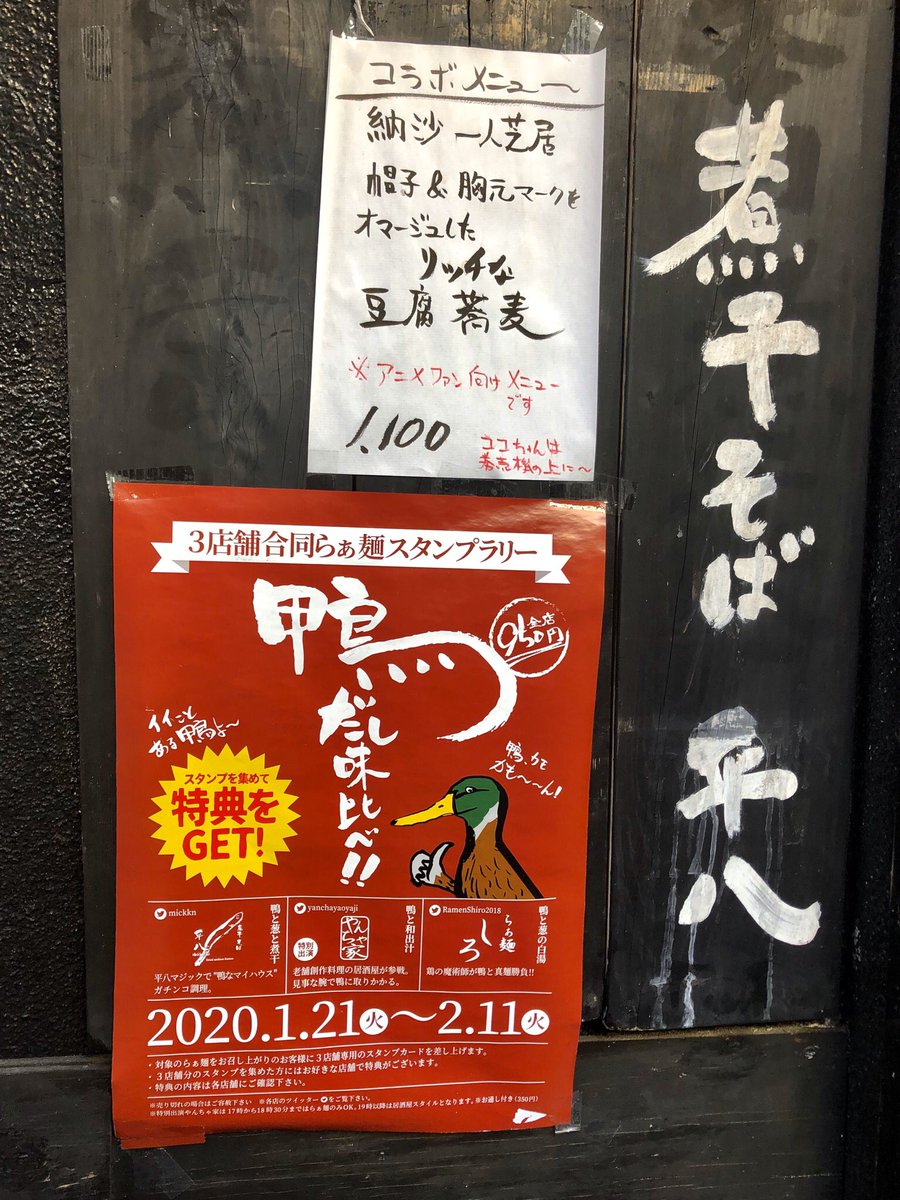 コラボメニュー
納沙一人芝居
帽子&胸元マークを
オマージュした
リッチな
豆腐蕎麦
※アニメファン向けメニュー
です
1,100
ココちゃんは
券売機の上に〜
煮干そば 平八
3店舗合同らぁ麺スタンプラリー
鴨
だし味比べ!!
全店
950円
イイこと
ある鴨よ〜
スタンプを集めて
特典を
GET!
鴨、かも
かも〜〜ん!
mickkn
鴨と葱と煮干
平八
平八マジックで"鴨なマイハウス"
ガチンコ調理。
yanchayaoyaji
鴨と和出汁
特別
出演
やんちゃ家
老舗創作料理の居酒屋が参戦。
見事な腕で鴨に取りかかる。
RamenShiro2018
鴨と葱の白湯
らぁ麺
しろ
鶏の魔術師が鴨と真麺勝負!!
2020.1.21火〜2.11火
・対象のらぁ麺をお召し上がりのお客様に3店舗専用のスタンプカードを差し上げます。
・3店舗分のスタンプを集めた方にはお好きな店舗で特典がございます。
・特典の内容は各店舗にご確認下さい。
※売り切れの場合はご容赦下さい ※各店のツイッターをご覧下さい。
※特別出演やんちゃ家は17時から18時30分まではらぁ麺のみOK。19時以降は居酒屋スタイルとなります。※お通し付き(350円)